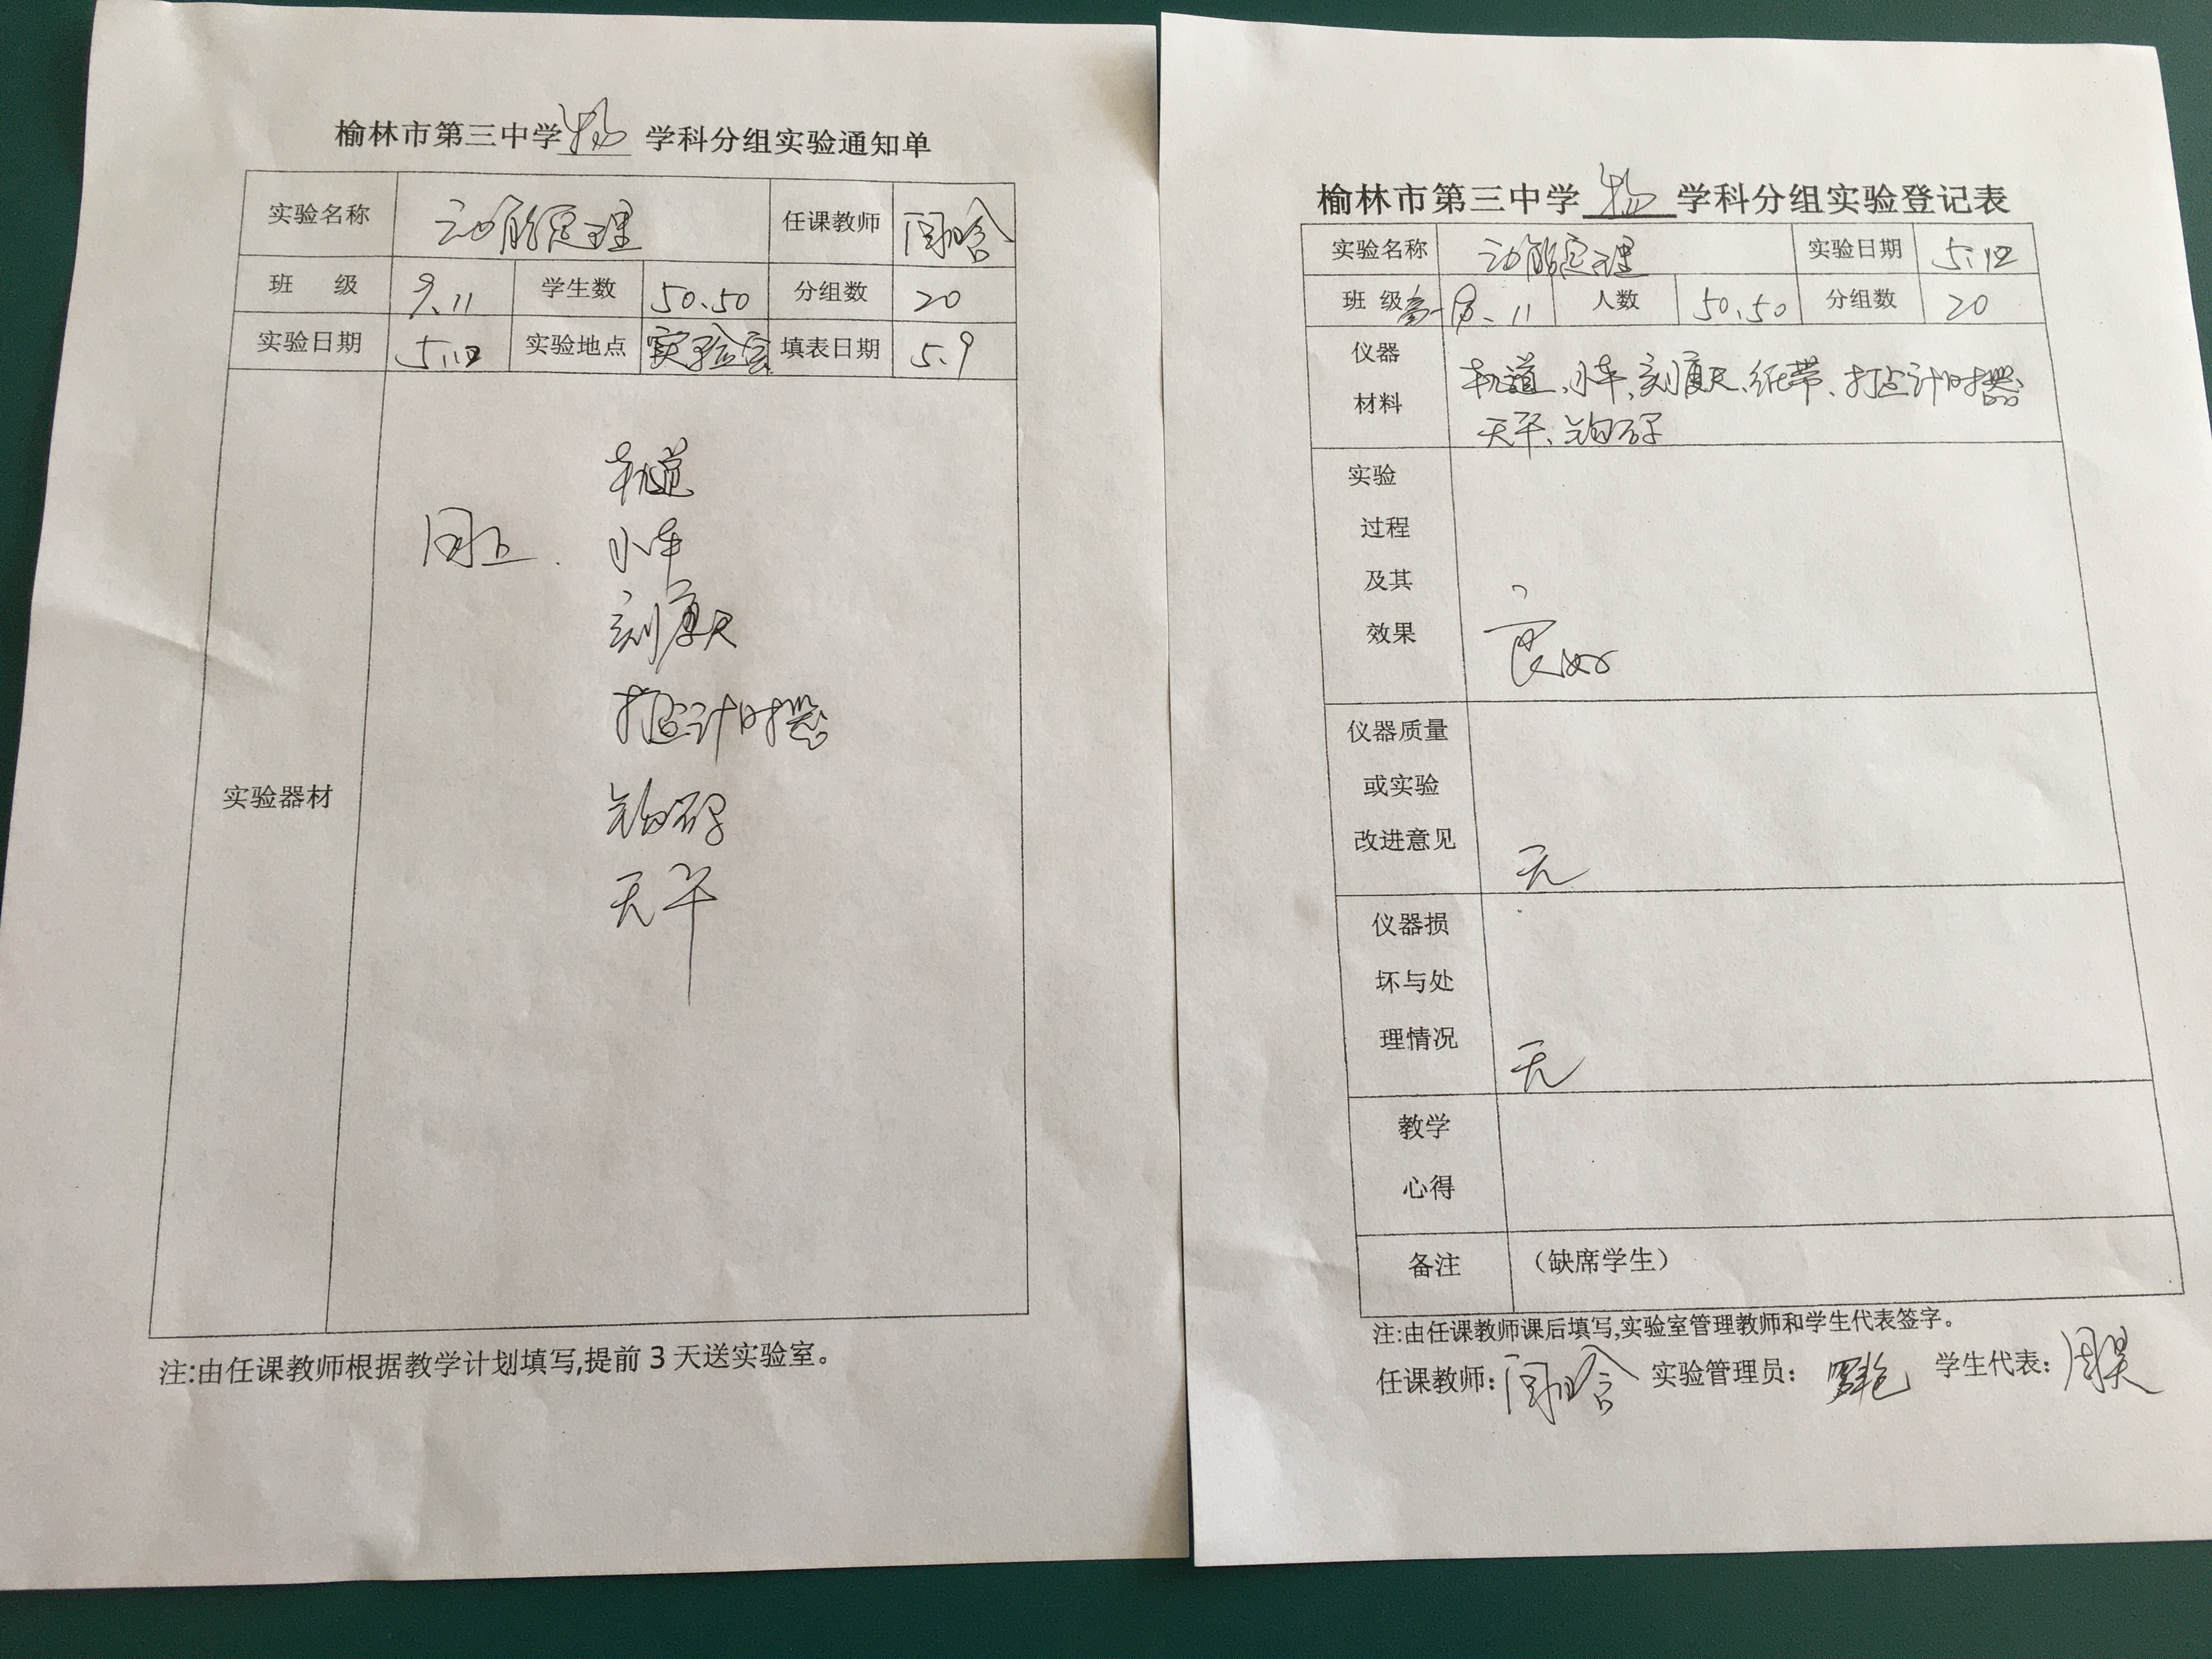 榆林市第三中学 物 学科分组实验通知单
实验名称 动能定理 任课教师
班 级 9、11 学生数 50、50 分组数 20
实验日期 5.12 实验地点 实验室 填表日期 5.9
实验器材
同上.
轨道
小车
刻度尺
打点计时器
钩码
天平
注:由任课教师根据教学计划填写,提前3天送实验室。
榆林市第三中学 物 学科分组实验登记表
实验名称 动能定理 实验日期 5.12
班 级 高一 9、11 人数 50、50 分组数 20
仪器
材料
轨道、小车、刻度尺、纸带、打点计时器
天平、钩码
实验
过程
及其
效果
良好
仪器质量
或实验
改进意见
无
仪器损
坏与处
理情况
无
教学
心得
备注 （缺席学生）
注:由任课教师课后填写,实验室管理教师和学生代表签字。
任课教师: 实验管理员: 学生代表: